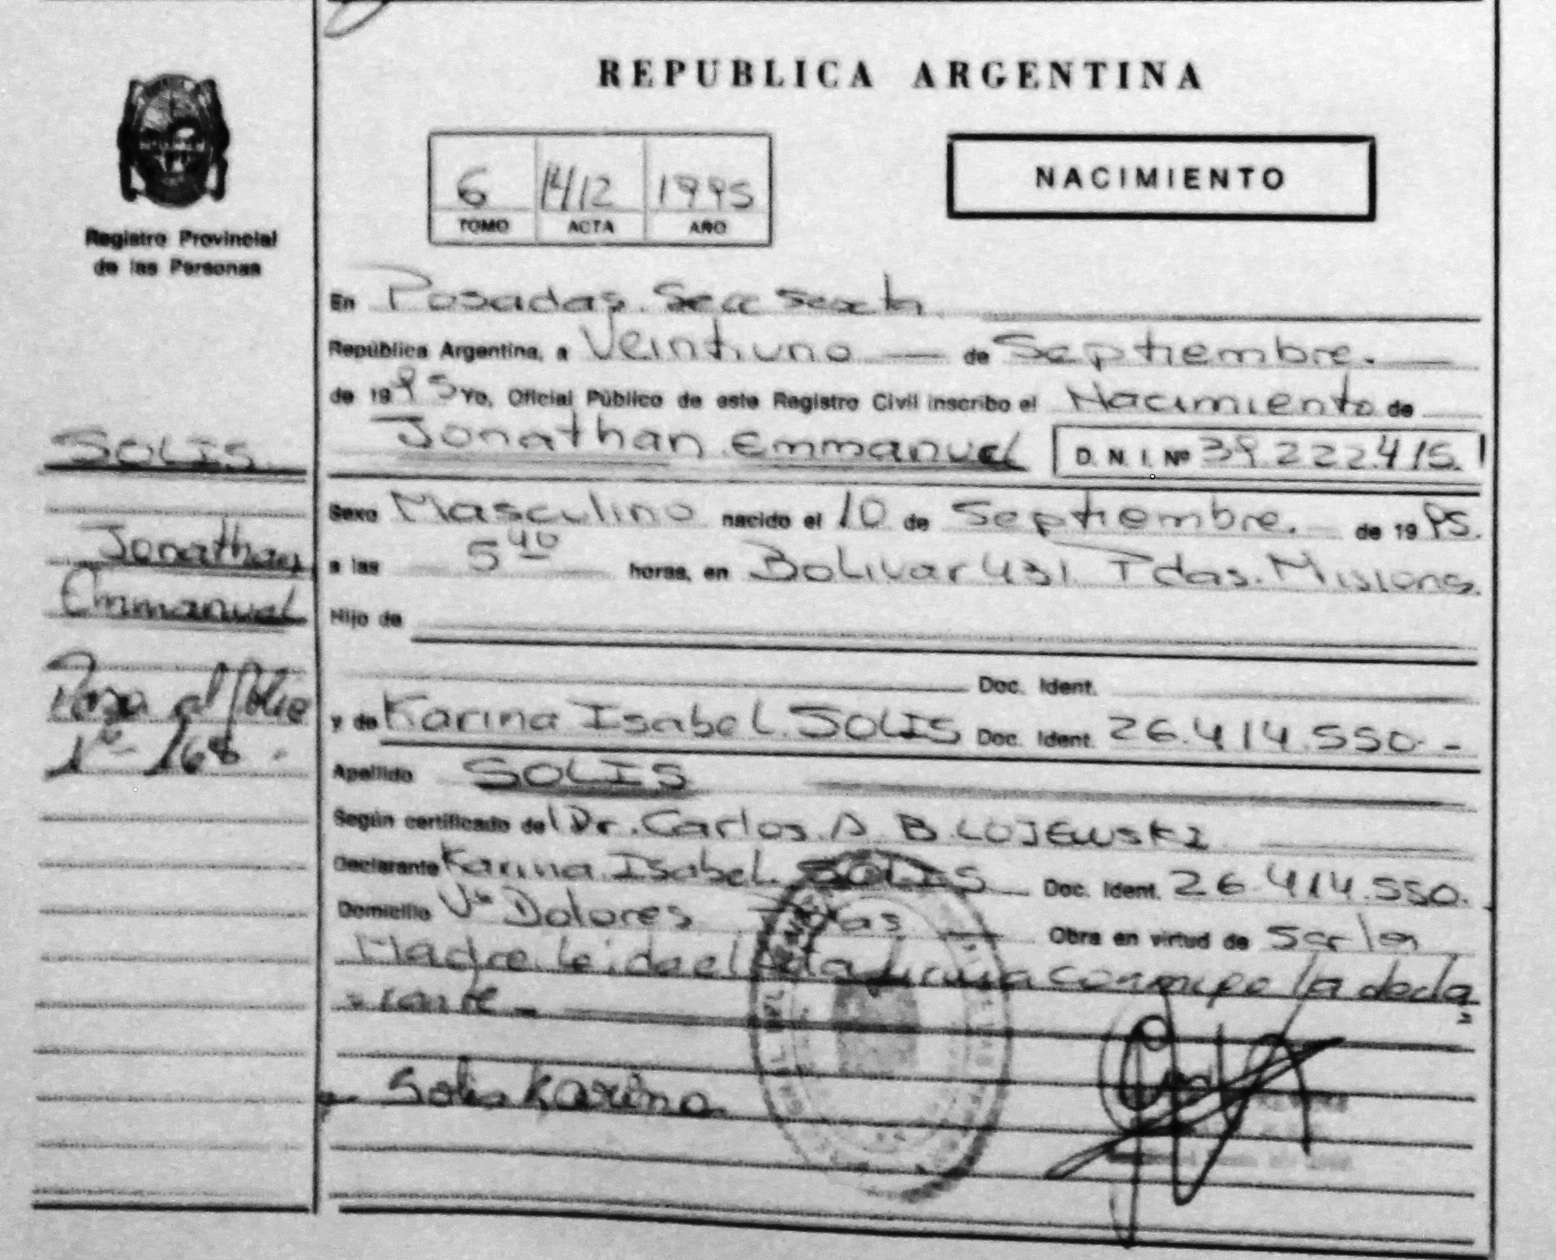 REPUBLICA ARGENTINA
NACIMIENTO
6 1412 1995
TOMO ACTA AÑO
Registro Provincial
de las Personas
En Posadas. Secc Sexta
República Argentina, a Veintiuno de Septiembre.
de 1995 Yo, Oficial Público de este Registro Civil inscribo el Nacimiento de
Jonathan Emmanuel D. N. I. Nº 39.222.415.
SOLIS
Jonathan
Emmanuel
Pasa al folio
168
Sexo Masculino nacido el 10 de Septiembre. de 1995.
a las 5 40 horas, en Bolivar 431. Pdas. Misiones.
Hijo de
Doc. Ident.
y de Karina Isabel SOLIS Doc. Ident. 26.414.550.-
Apellido SOLIS
Según certificado del Dr. Carlos. A. B. LOJEWSKI
Declarante Karina Isabel SOLIS Doc. Ident. 26.414.550.
Domicilio Vª Dolores Pdas Obra en virtud de Ser la
Madre. leida el Acta firma conmigo la decla
=rante._
Solis Karina